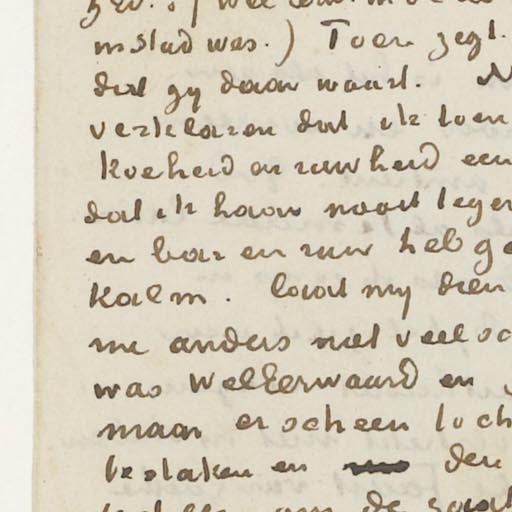 in Stad was.) Toen zegt
dat gy daar waart. N
verklaren dat ik toen
koeheid en ruwheid een
dat ik haar nooit tegen
en bar en ruw heb ge
kalm. laat my dien
me anders niet veel sc
was Welkerwaard en
maar er scheen toch
te staken en den